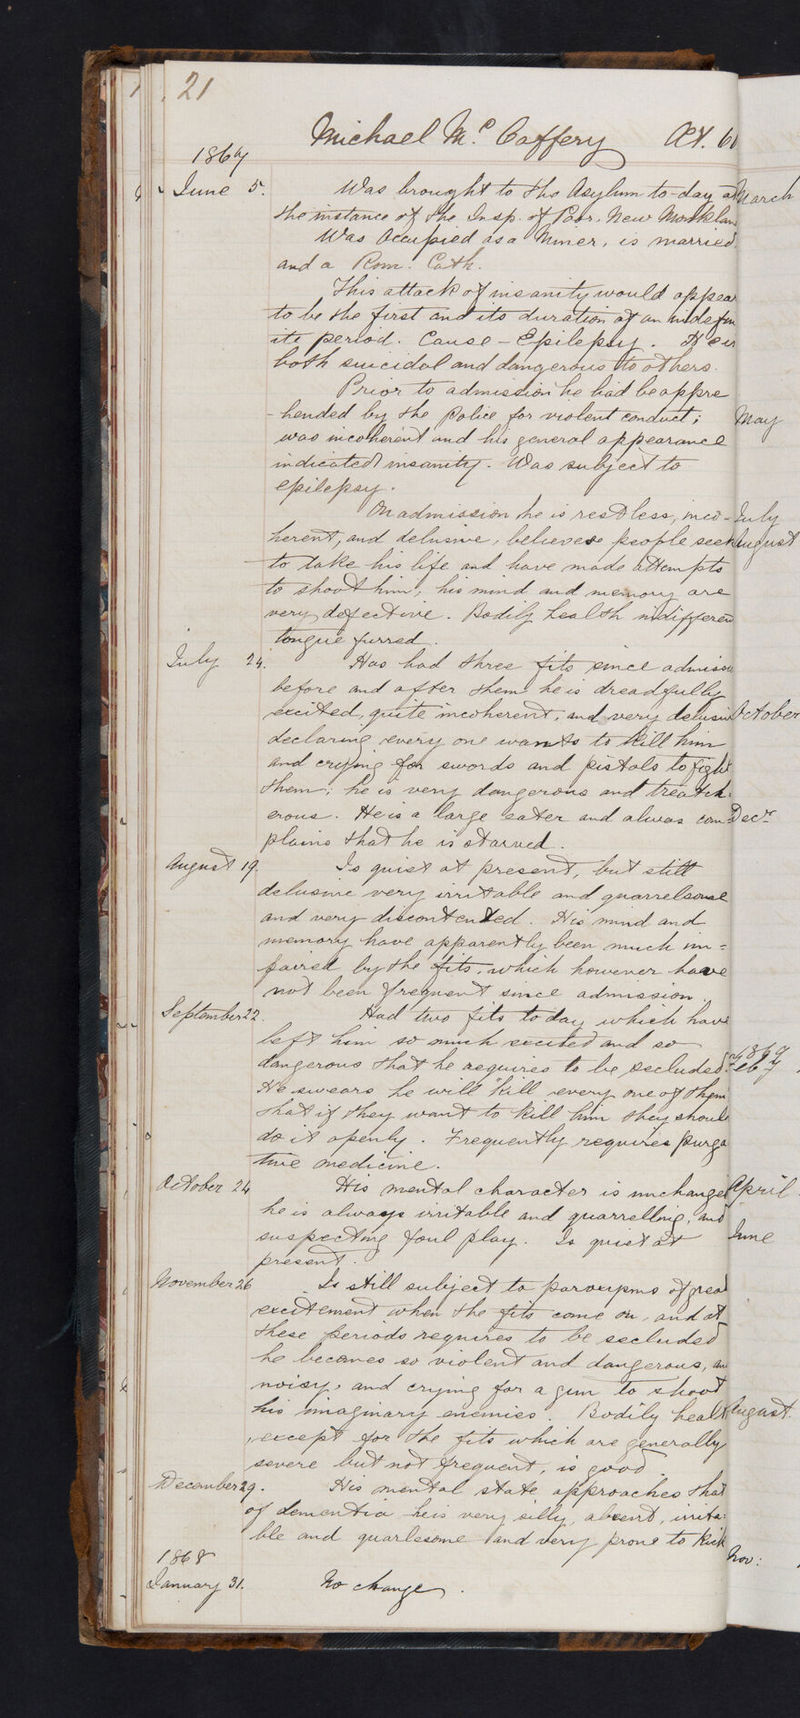 21
Michael McCaffery Æt. 60
1867
June 5. Was brought to the Asylum to-day at
the instance of the Insp. of Poor, New Monklan
Was Occupied as a Miner, is married
and a Rom. Cath.
This attack of insanity would appear
to be the first and its duration of an indefin
ite period. Cause - Epilepsy. He is
both suicidal and dangerous to others.
Prior to admission he had be appre
-hended by the Police for violent conduct;
was incoherent and his general appearance
indicated insanity. Was subject to
epilepsy.
On admission he is restless, inco-
herent, and delusive, believes people seek
to take his life and have made attempts
to shoot him; his mind and memory are
very defective. Bodily health indifferen
tongue furred.
July 24. Has had three fits since admiss
before and after them he is dreadfully
excited, quite incoherent, and very delusiv
declaring every one wants to kill him
and crying for swords and pistols to fight
them; he is very dangerous and treach-
erous. He is a large eater and alwas com-
plains that he is starved.
August 19. Is quiet at present, but still
delusive very irritable and quarrelsome
and very discontented. His mind and
memory have apparently been much im=
paired by the fits, which however have
not been frequent since admission.
September 22. Had two fits today which have
left him so much excited and so
dangerous that he requires to be secluded.
He swears he will kill every one of them
that if they want to kill him they should
do it openly. Frequently requires purga
tive medicine.
October 24 His mental character is unchanged
he is always irritable and quarrelling, and
suspecting foul play. Is quiet at
present.
November 26 Is still subject to paroxysms of grea
excitement when the fits come on, and at
these periods requires to be secluded
he becomes so violent and dangerous, an
noisy, and crying for a gun to shoot
his imaginary enemies. Bodily healt
, except for the fits which are generally
severe but not frequent, is good
December 29. His mental state approaches that
of dementia he is very silly, absent, irrita-
ble and quarlesome and very prone to kick
1868
January 31. No change.
March
May
July
August
October
Decr
1869
Feby
April
June
August.
Nov: